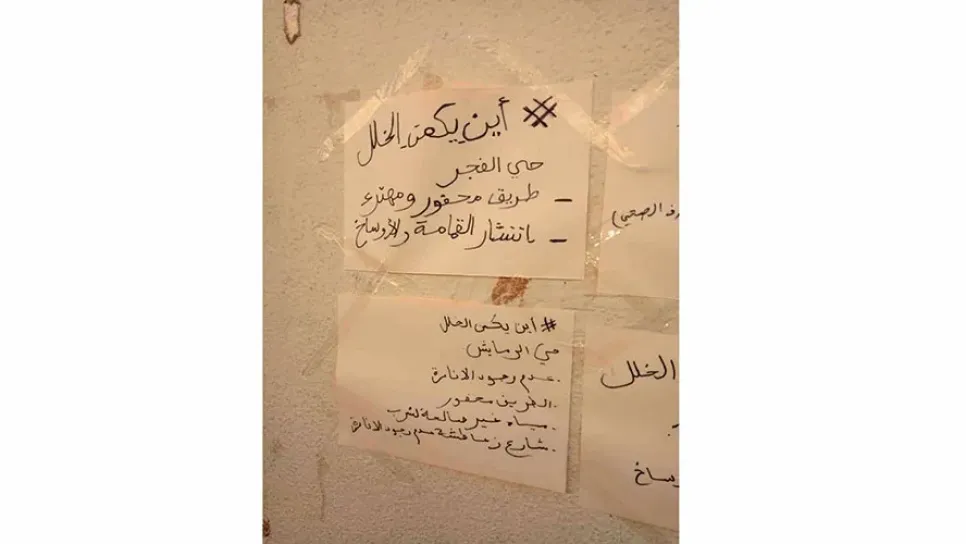 # أين يكمن الخلل
حي الفجر
- طريق محفور ومهترء
- انتشار القمامة والأوساخ
# أين يكمن الخلل
حي الرمايش
. عدم وجود الانارة
. الطريق محفور
. مياه غير صالحة لشرب
. شارع عدم وجود الانارة
الخلل